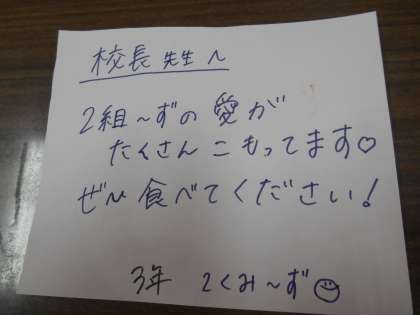 校長先生へ
2組〜ずの愛が
たくさんこもってます♡
ぜひ食べてください!
3年 2くみ〜ず☺